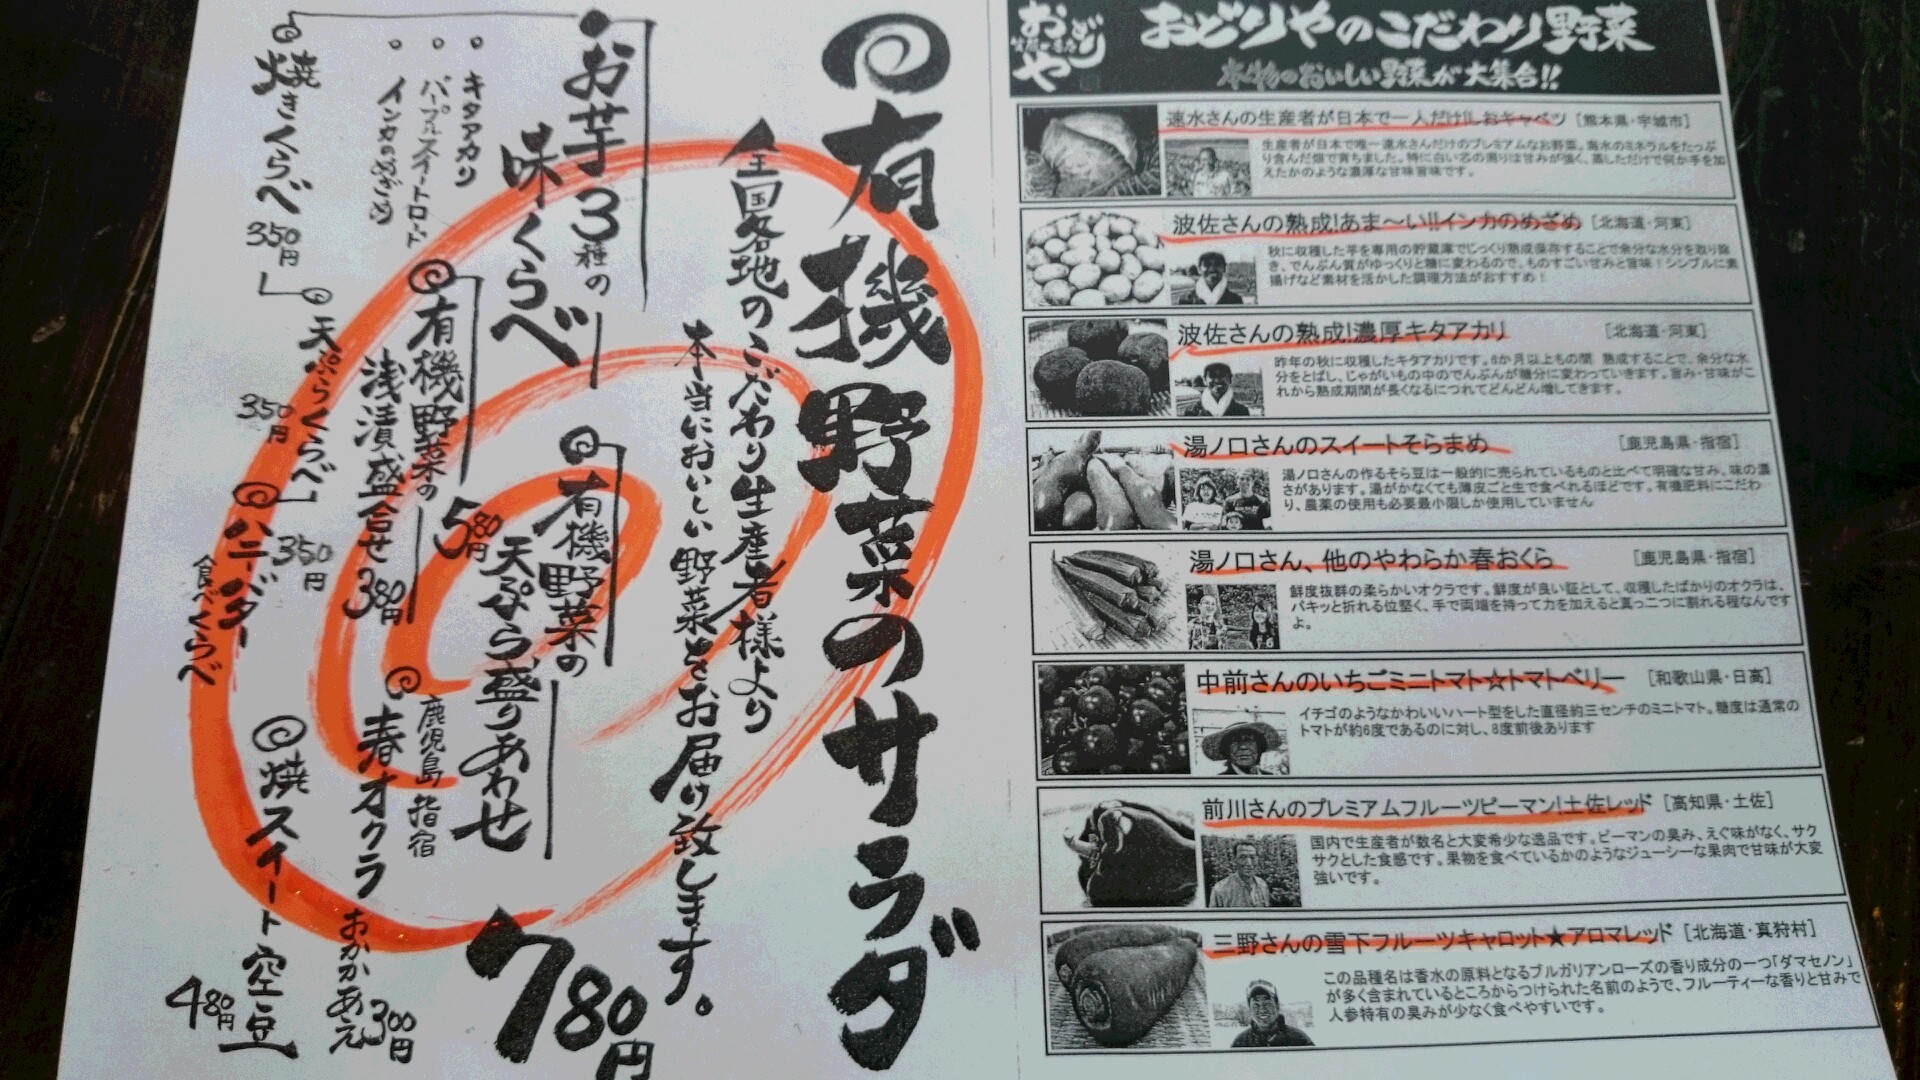 有機野菜のサラダ
全国各地のこだわり生産者様より
本当においしい野菜をお届け致します。
780円
お芋3種の
味くらべ
・キタアカリ
・パープルスイートロード
・インカのめざめ
焼きくらべ
350円
天ぷらくらべ
350円
ハニーバター
食べくらべ
350円
有機野菜の
天ぷら盛りあわせ
580円
有機野菜の
浅漬盛合せ
380円
鹿児島 指宿
春オクラ
おかかあえ
300円
焼スイート空豆
480円
おどりや
おどりやのこだわり野菜
本物のおいしい野菜が大集合!!
速水さんの生産者が日本で一人だけ!しおキャベツ [熊本県・宇城市]
生産者が日本で唯一速水さんだけのプレミアムなお野菜。海水のミネラルをたっぷ
り含んだ畑で育ちました。特に白い芯の周りは甘みが強く、蒸しただけで何か手を加
えたかのような濃厚な甘味旨味です。
波佐さんの熟成!あま〜い!!インカのめざめ [北海道・河東]
秋に収穫した芋を専用の貯蔵庫でじっくり熟成保存することで余分な水分を取り除
き、でんぷん質がゆっくりと糖に変わるので、ものすごい甘みと旨味!シンプルに素
揚げなど素材を活かした調理方法がおすすめ!
波佐さんの熟成!濃厚キタアカリ [北海道・河東]
昨年の秋に収穫したキタアカリです。6か月以上もの間 熟成することで、余分な水
分をとばし、じゃがいもの中のでんぷんが糖分に変わっていきます。旨み・甘味がこ
れから熟成期間が長くなるにつれてどんどん増してきます。
湯ノ口さんのスイートそらまめ [鹿児島県・指宿]
湯ノ口さんの作るそら豆は一般的に売られているものと比べて明確な甘み、味の濃
さがあります。湯がかなくても薄皮ごと生で食べれるほどです。有機肥料にこだわ
り、農薬の使用も必要最小限しか使用していません
湯ノ口さん、他のやわらか春おくら [鹿児島県・指宿]
鮮度抜群の柔らかいオクラです。鮮度が良い証として、収穫したばかりのオクラは、
パキッと折れる位堅く、手で両端を持って力を加えると真っ二つに割れる程なんです
よ。
中前さんのいちごミニトマト☆トマトベリー [和歌山県・日高]
イチゴのようなかわいいハート型をした直径約三センチのミニトマト。糖度は通常の
トマトが約6度であるのに対し、8度前後あります
前川さんのプレミアムフルーツピーマン!土佐レッド [高知県・土佐]
国内で生産者が数名と大変希少な逸品です。ピーマンの臭み、えぐ味がなく、サク
サクとした食感です。果物を食べているかのようなジューシーな果肉で甘味が大変
強いです。
三野さんの雪下フルーツキャロット★アロマレッド [北海道・真狩村]
この品種名は香水の原料となるブルガリアンローズの香り成分の一つ「ダマセノン」
が多く含まれているところからつけられた名前のようで、フルーティーな香りと甘みで
人参特有の臭みが少なく食べやすいです。